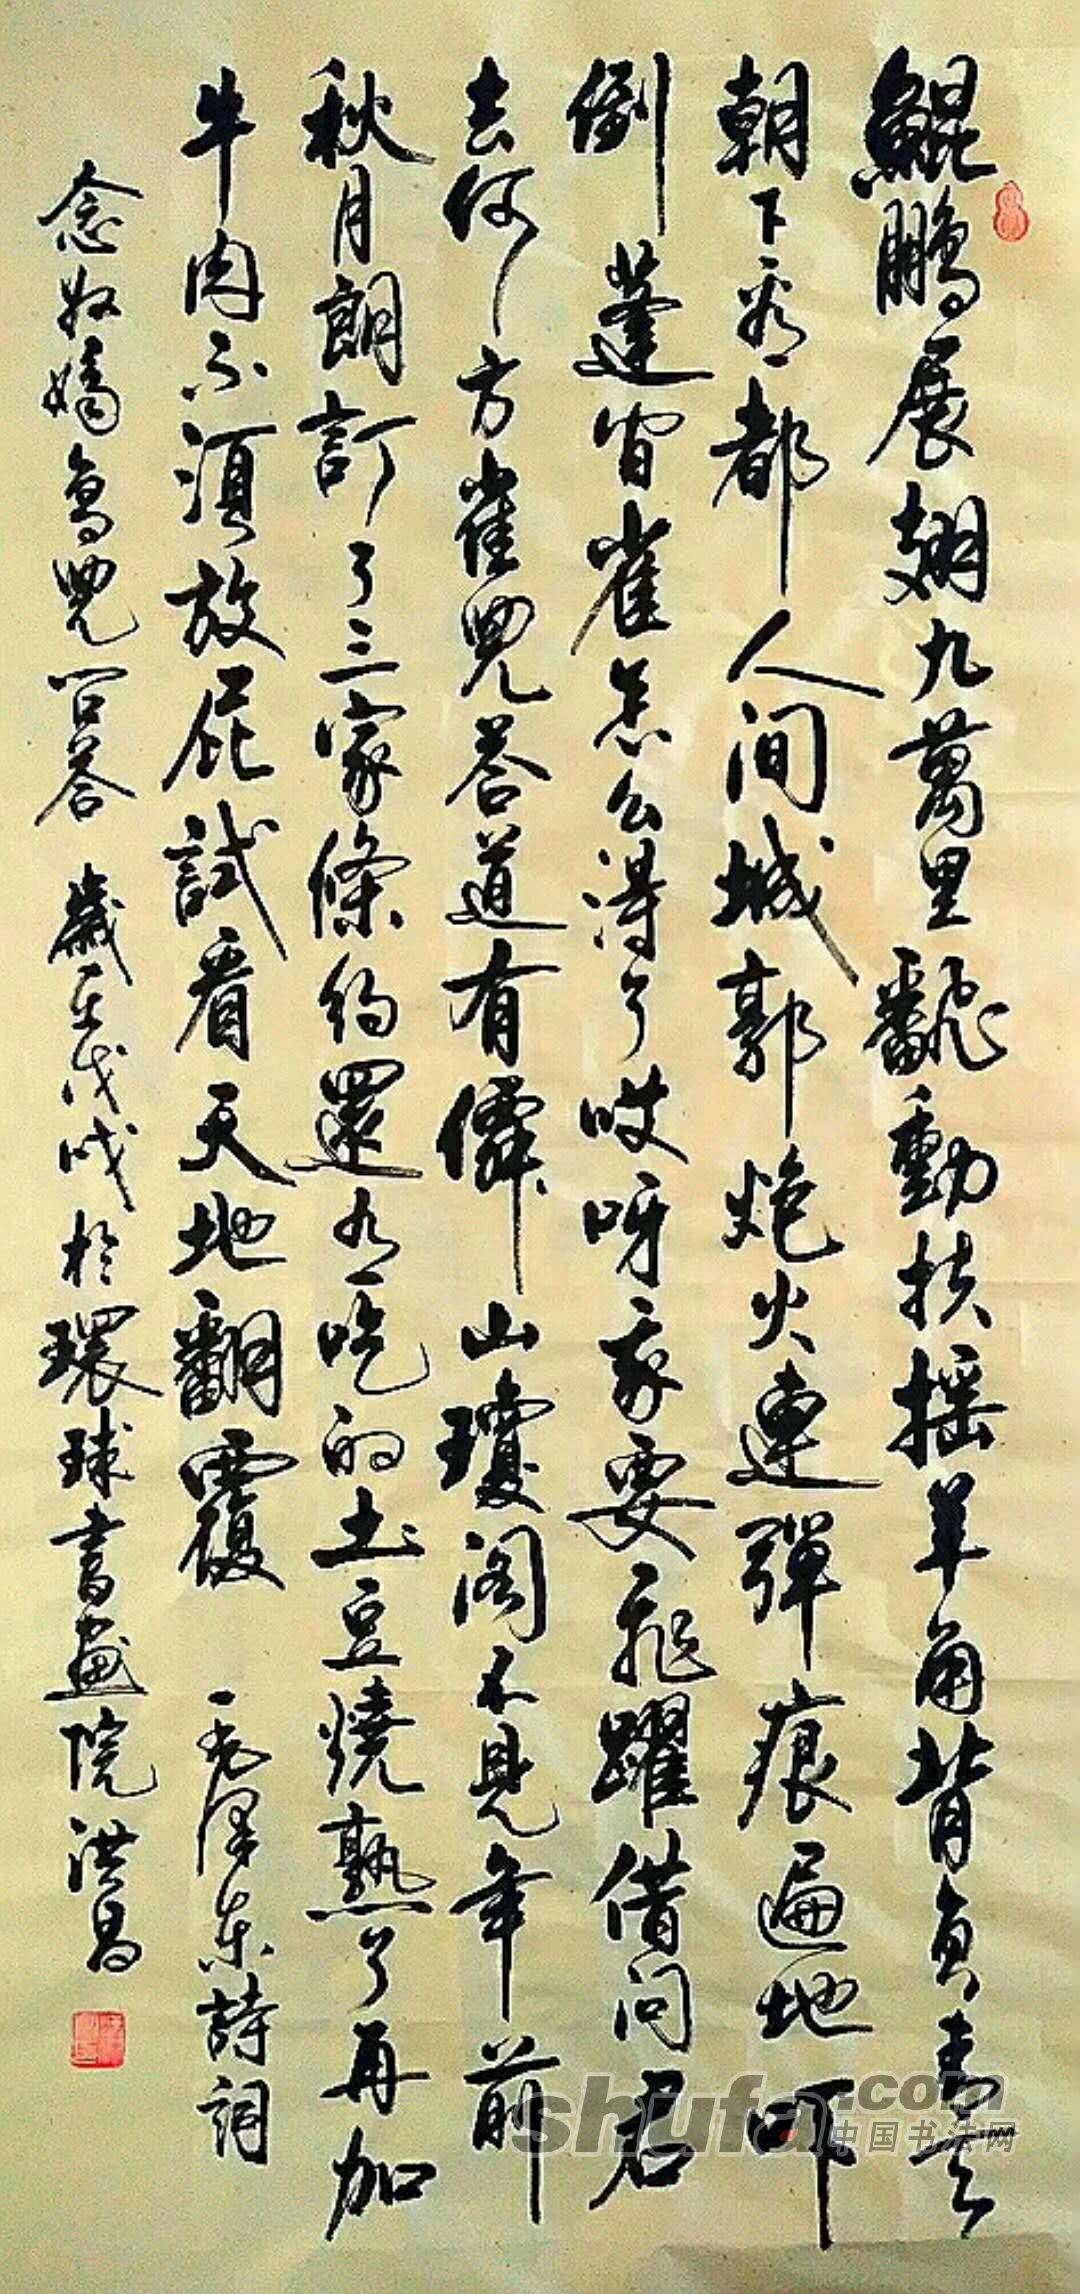 鯤鵬展翅九萬里飜動扶摇羊角背負青天
朝下看都人间城郭炮火連彈痕遍地吓
倒蓬间雀怎么得了哎呀我要飛躍借问君
去何方雀兒答道有僊山瓊阁不見年前
秋月朗訂了三家條約還有吃的土豆燒熟了再加
牛肉不須放屁試看天地翻覆 一毛泽东詩詞
念奴嬌鳥兒问答 歲在戊戌於環球書畫院洪昌
shufa.com
中国书法网